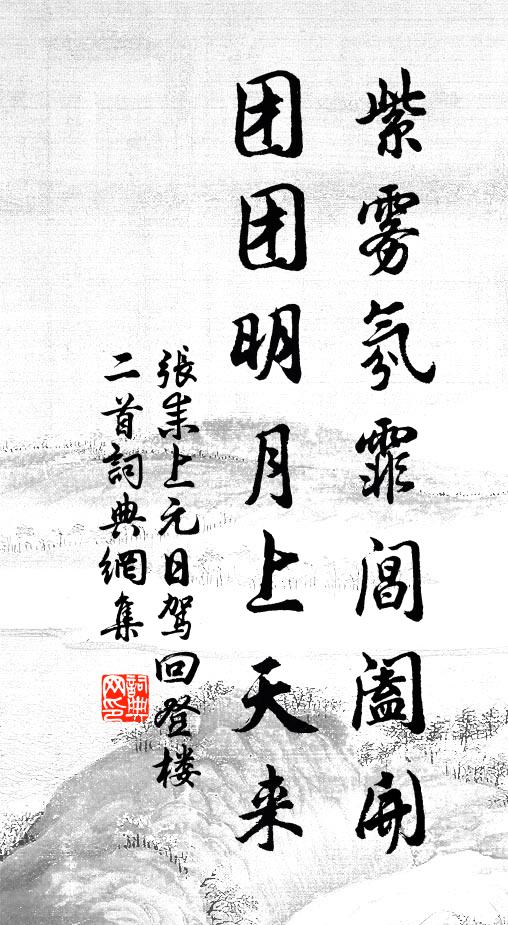 紫雾氛霏阊阖开
团团明月上天来
張耒上元日駕回登楼
二首詞典網集
詞典网印